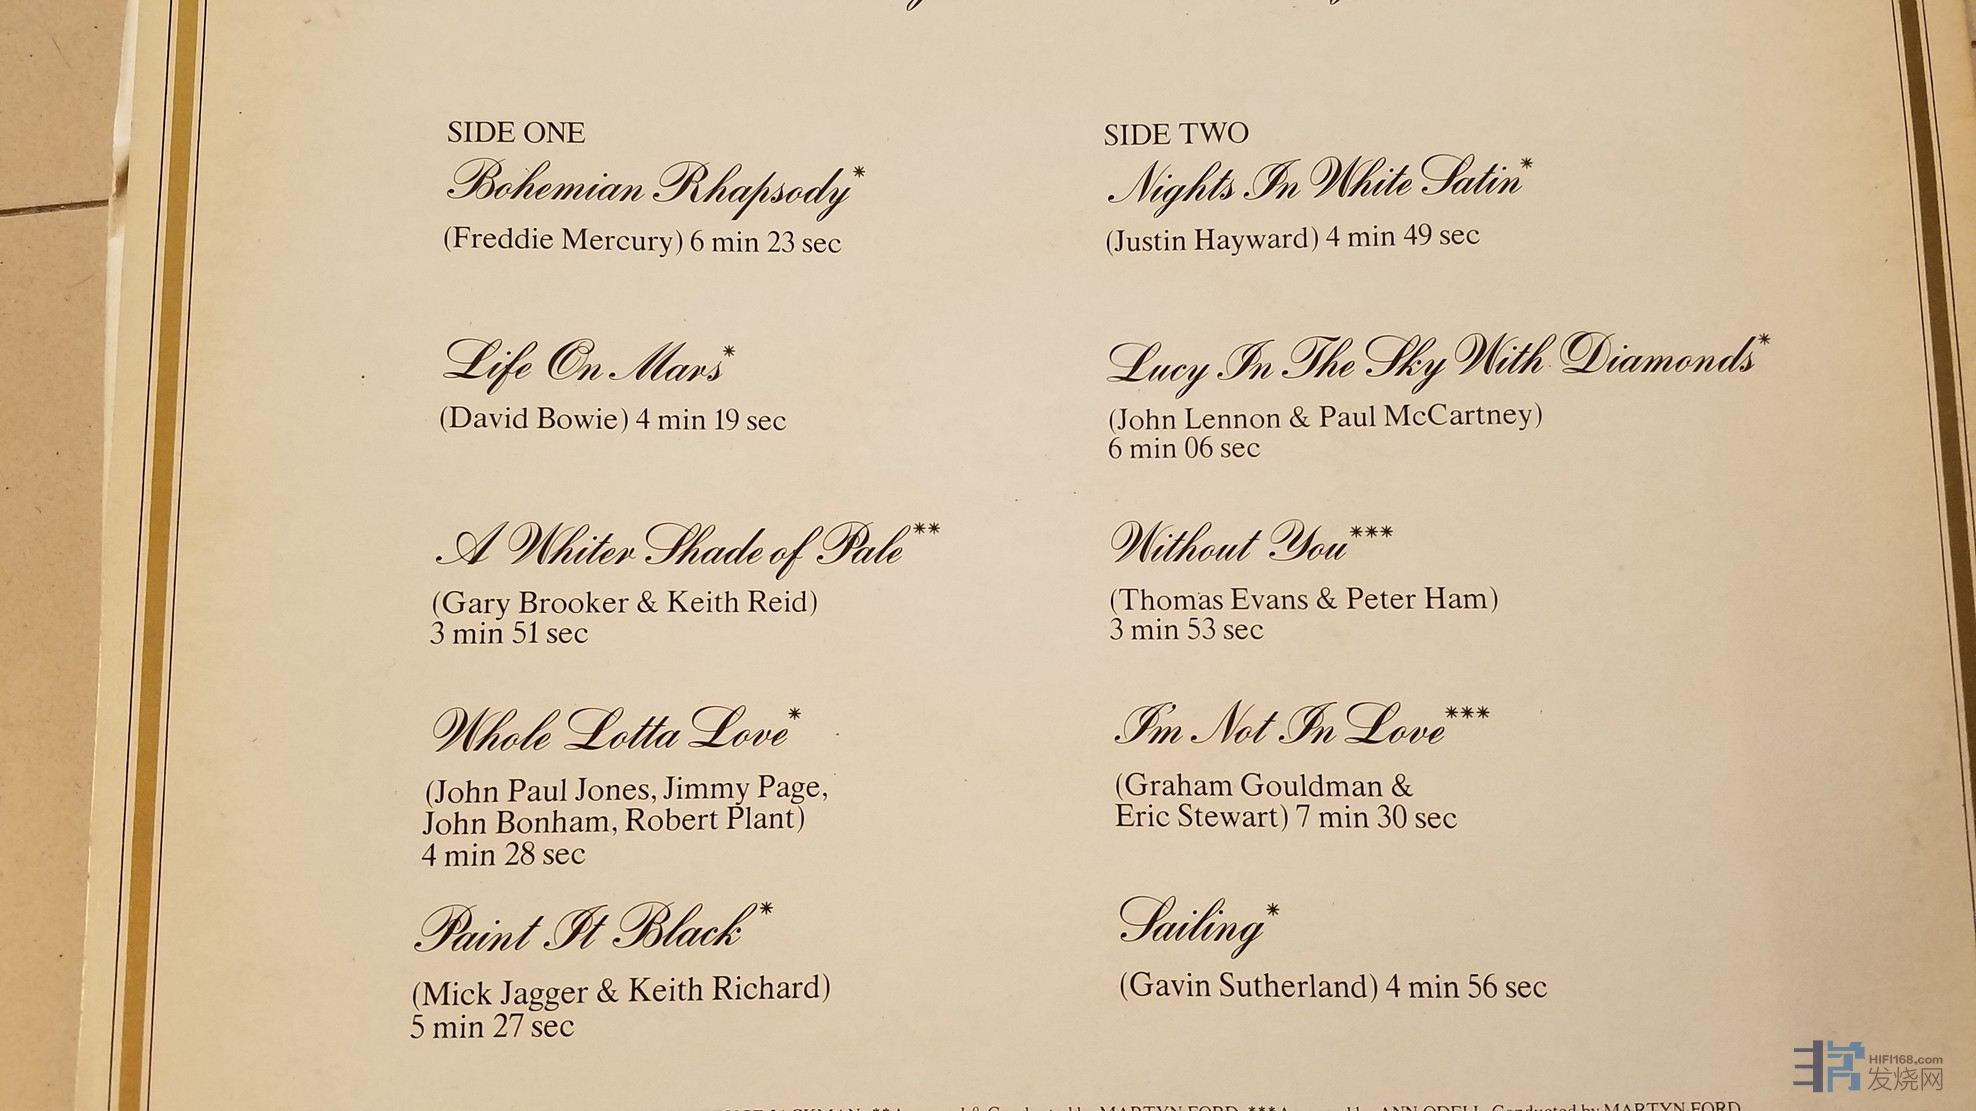 SIDE ONE
Bohemian Rhapsody*
(Freddie Mercury) 6 min 23 sec
Life On Mars*
(David Bowie) 4 min 19 sec
A Whiter Shade of Pale**
(Gary Brooker & Keith Reid)
3 min 51 sec
Whole Lotta Love*
(John Paul Jones, Jimmy Page,
John Bonham, Robert Plant)
4 min 28 sec
Paint It Black*
(Mick Jagger & Keith Richard)
5 min 27 sec
SIDE TWO
Nights In White Satin*
(Justin Hayward) 4 min 49 sec
Lucy In The Sky With Diamonds*
(John Lennon & Paul McCartney)
6 min 06 sec
Without You***
(Thomas Evans & Peter Ham)
3 min 53 sec
I'm Not In Love***
(Graham Gouldman &
Eric Stewart) 7 min 30 sec
Sailing*
(Gavin Sutherland) 4 min 56 sec
JACKMAN **Arranged & Conducted by MARTYN FORD ***Arranged by ANN ODELL Conducted by MARTYN FORD
HIFI168.com
发烧网